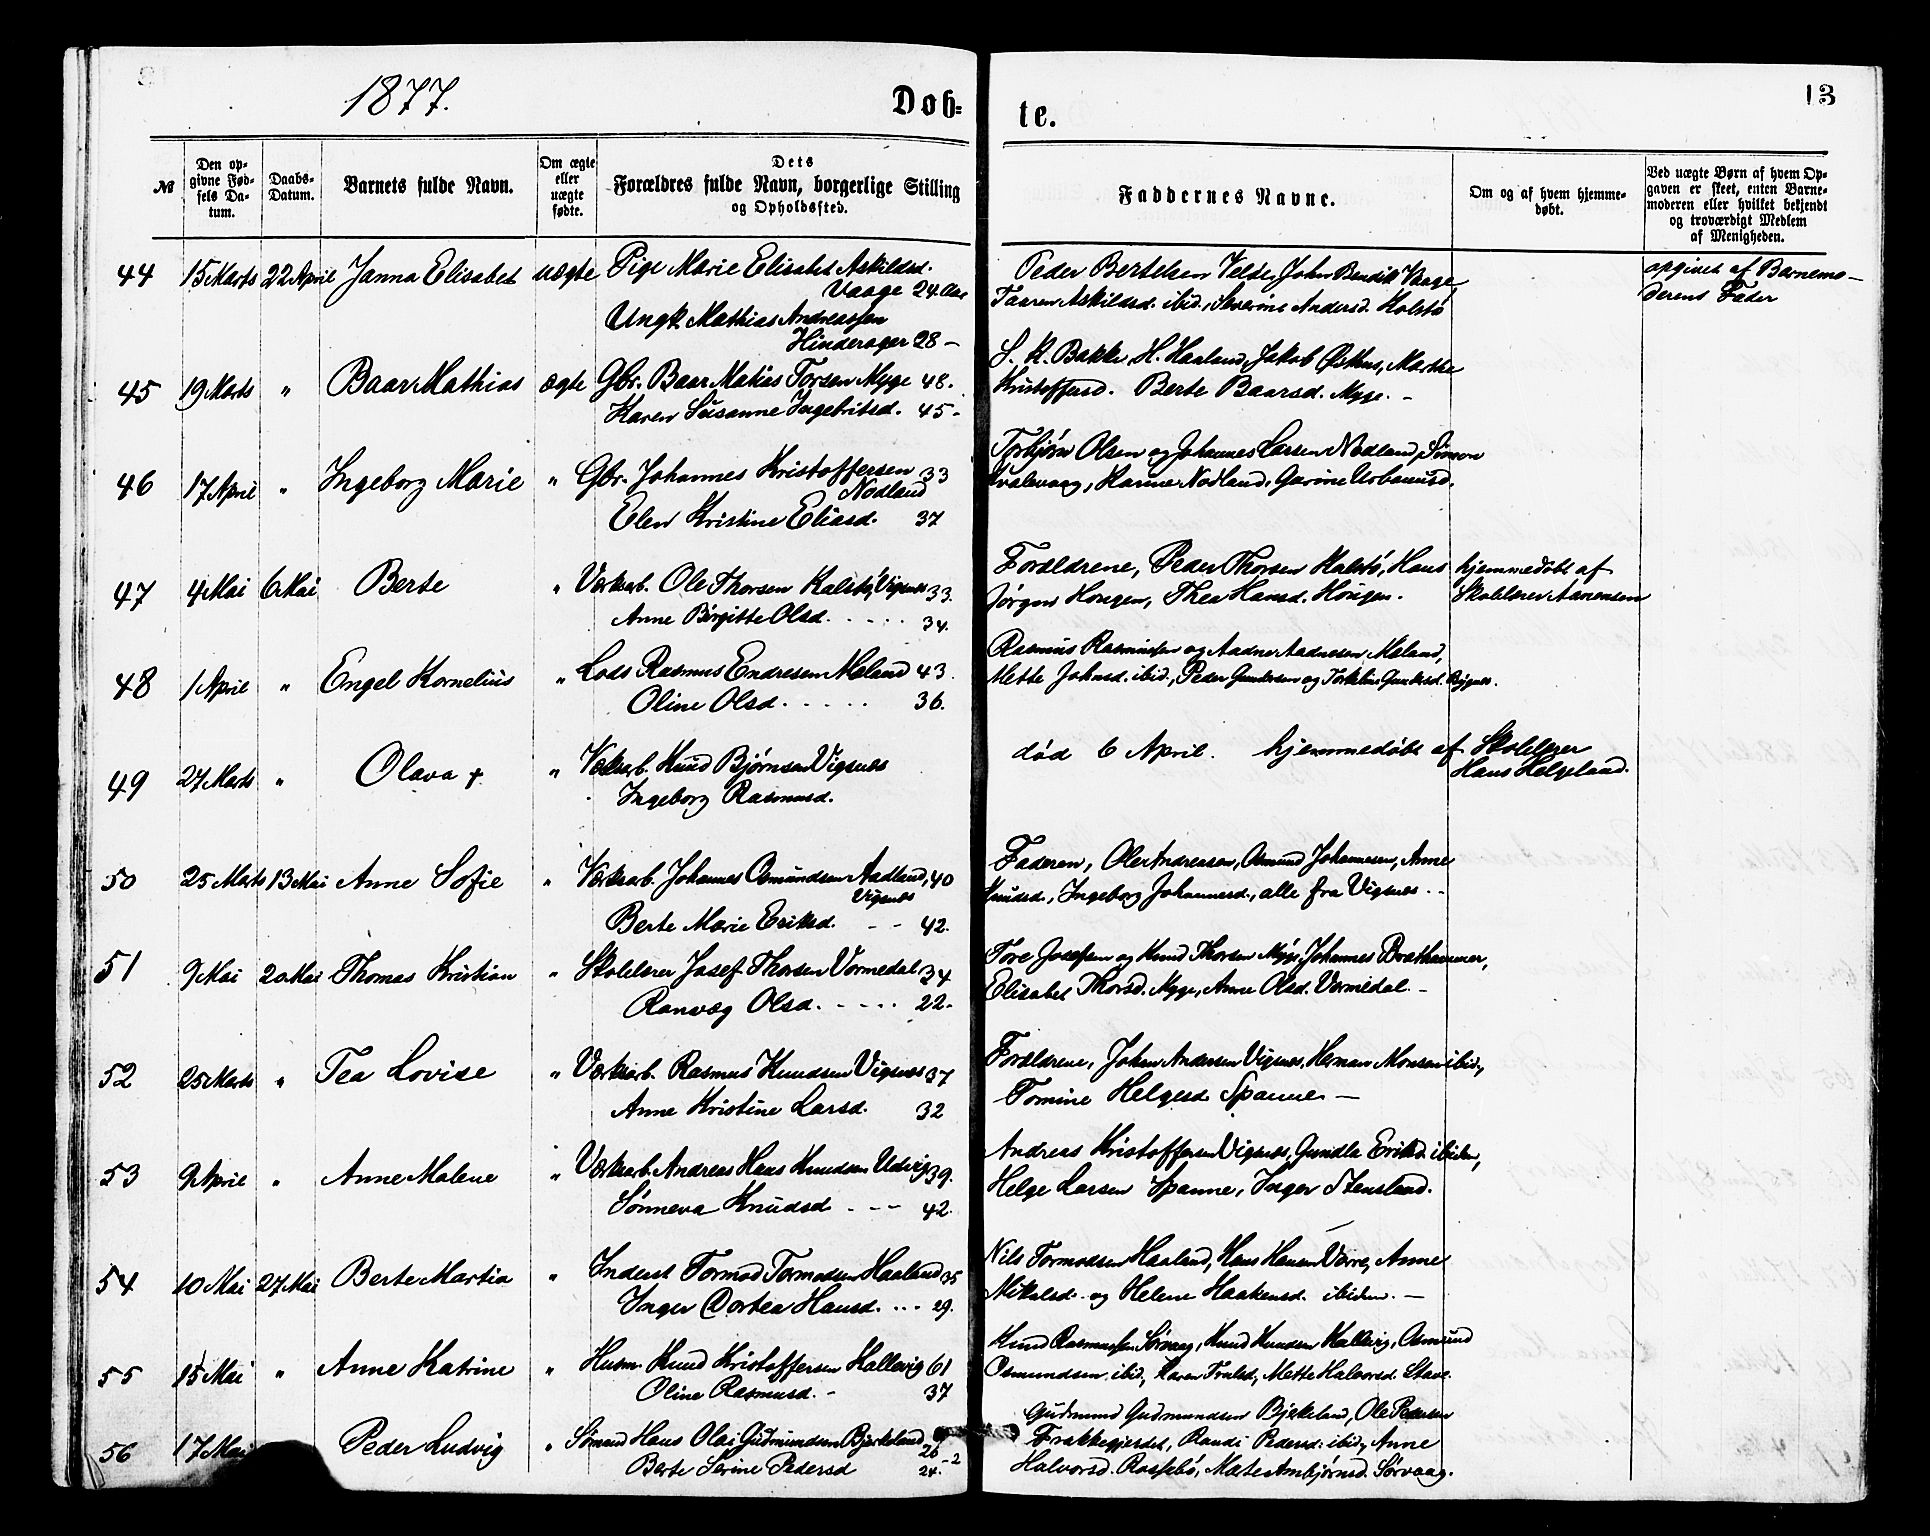 1877.
Døb-
te.
13
№
Den op-
givne Fød-
sels Da-
tum.
Daabs-
Datum.
Barnets fulde Navn.
Om ægte
eller
uægte
fødte.
Dets
Forældres fulde Navn, borgerlige Stilling
og Opholdssted.
Faddernes Navne.
Om og af hvem hjemme-
døbt.
Ved uægte Børn af hvem Op-
gaven er skeet, enten Barne-
moderen eller hvilket bekjendt
og troværdigt Medlem
af Menigheden.
44 15 Marts 22 April Janna Elisabet uægte Pige Marie Elisabet Askildsd.
Vaage 24 Aar
Ungk. Mathias Andreassen
Hinderager 28 –
Peder Bertelsen Velde, John Bendik Vaage,
Taaren Askildsd. ibid., Severine Andersd. Holstø
opgivet af Barnemo-
derens Fader
45 19 Marts " Baar Mathias ægte Gbr. Baar Matias Torsen Myge 48.
Karen Susanne Ingebritsd. 45 -
S. K. Bakke, H. Haaland, Jakob Østhus, Marthe
Kristoffersd. Berte Baarsd. Myge. -
46 17 April " Ingeborg Marie " Gbr. Johannes Kristoffersen 33
Nodland
Elen Kristine Eliasd. 37
Torbjørn Olsen og Johannes Larsen Nodland, Simon
Kvalevaag, Hanne Nodland, Gurine Urbanusd.
47 4 Mai 6 Mai Berte " Værksarb. Ole Thorsen Kalstø, Vigsnes 33.
Anne Birgitte Olsd. . . . . . 34.
Forældrene, Peder Thorsen Kalstø, Hans
Jørgen Hougen, Thea Hansd. Hougen.
hjemmedøbt af
Skolelærer Aanensen
48 1 April " Engel Kornelius " Lods Rasmus Endresen Meland 43.
Oline Olsd. . . . . . 36.
Rasmus Rasmussen og Aadne Aadnesen Meland,
Mette Johnsd. ibid., Peder Gundersen og Torkeline Gundersd. Bygnes.
49 27 Marts " Olava + " Værksarb. Knud Bjørnsen Vigsnes
Ingeborg Rasmusd.
død 6 April. hjemmedøbt af Skolelærer
Hans Helgeland.
50 25 Marts 13 Mai Anne Sofie " Værksarb. Johannes Osmundsen Aadland, 40
Vigsnes
Berte Marie Eriksd. - - 42.
Faderen, Ole Andreasen, Osmund Johannesen, Anne
Knudsd., Ingeborg Johannesd., alle fra Vigsnes. -
51 9 Mai 20 Mai Thomas Kristian " Skolelærer Josef Thorsen Vormedal 34
Ranveg Olsd. - - - - 22.
Tore Josefsen og Knud Thorsen Myge, Johannes Bratthammer,
Elisabet Thorsd. Myge, Anne Olsd. Vormedal. -
52 25 Marts " Tea Lovise " Værksarb. Rasmus Knudsen Vigsnes 37
Anne Kristine Larsd. 32
Forældrene, Johan Andersen Vigsnes, Herman Monsen ibid.,
Tomine Helgesd. Spanne. —
53 9 April " Anne Malene " Værksarb. Andreas Hans Knudsen Udvig 39.
Sønneva Knudsd - - - 42.
Andreas Kristoffersen Vigsnes, Gundla Eriksd. ibidem,
Helge Larsen Spanne, Inger Stensland.
54 10 Mai 27 Mai Berte Martia " Inderst Tormod Tormodsen Haaland 35
Inger Dortea Hansd. . . . 29.
Nils Tormodsen Haaland, Hans Hansen Værre, Anne
Mikalsd. og Helene Haakensd. ibidem. —
55 15 Mai " Anne Katrine " Husm. Knud Kristoffersen Hallevig 61
Oline Rasmusd. - 37
Knud Rasmussen Sørvaag, Knud Knudsen Hallevig, Osmund
Osmundsen ibid, Karen Trulsd., Mette Halvorsd. Stave.
56 17 Mai Peder Ludvig " Sømand Hans Olai Gudmundsen Bjerkeland 26
Berte Serine Pedersd 24. - 2
Gudmund Gudmundsen Bjerkeland, Ole Pedersen
Frakkegjerdet, Randi Pedersd. ibid, Anne
Halvorsd. Rossebø, Mate Ambjørnsd. Sørvaag.